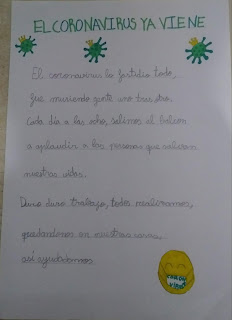 EL CORONAVIRUS YA VIENE
El coronavirus lo fastidia todo,
fue muriendo gente uno tras otro.
Cada día a las ocho salimos al balcon
a aplaudir a las personas que salvaron
nuestras vidas.
Duro duro trabajo, todos realizamos,
quedandonos en nuestras casas,
así ayudabamos.